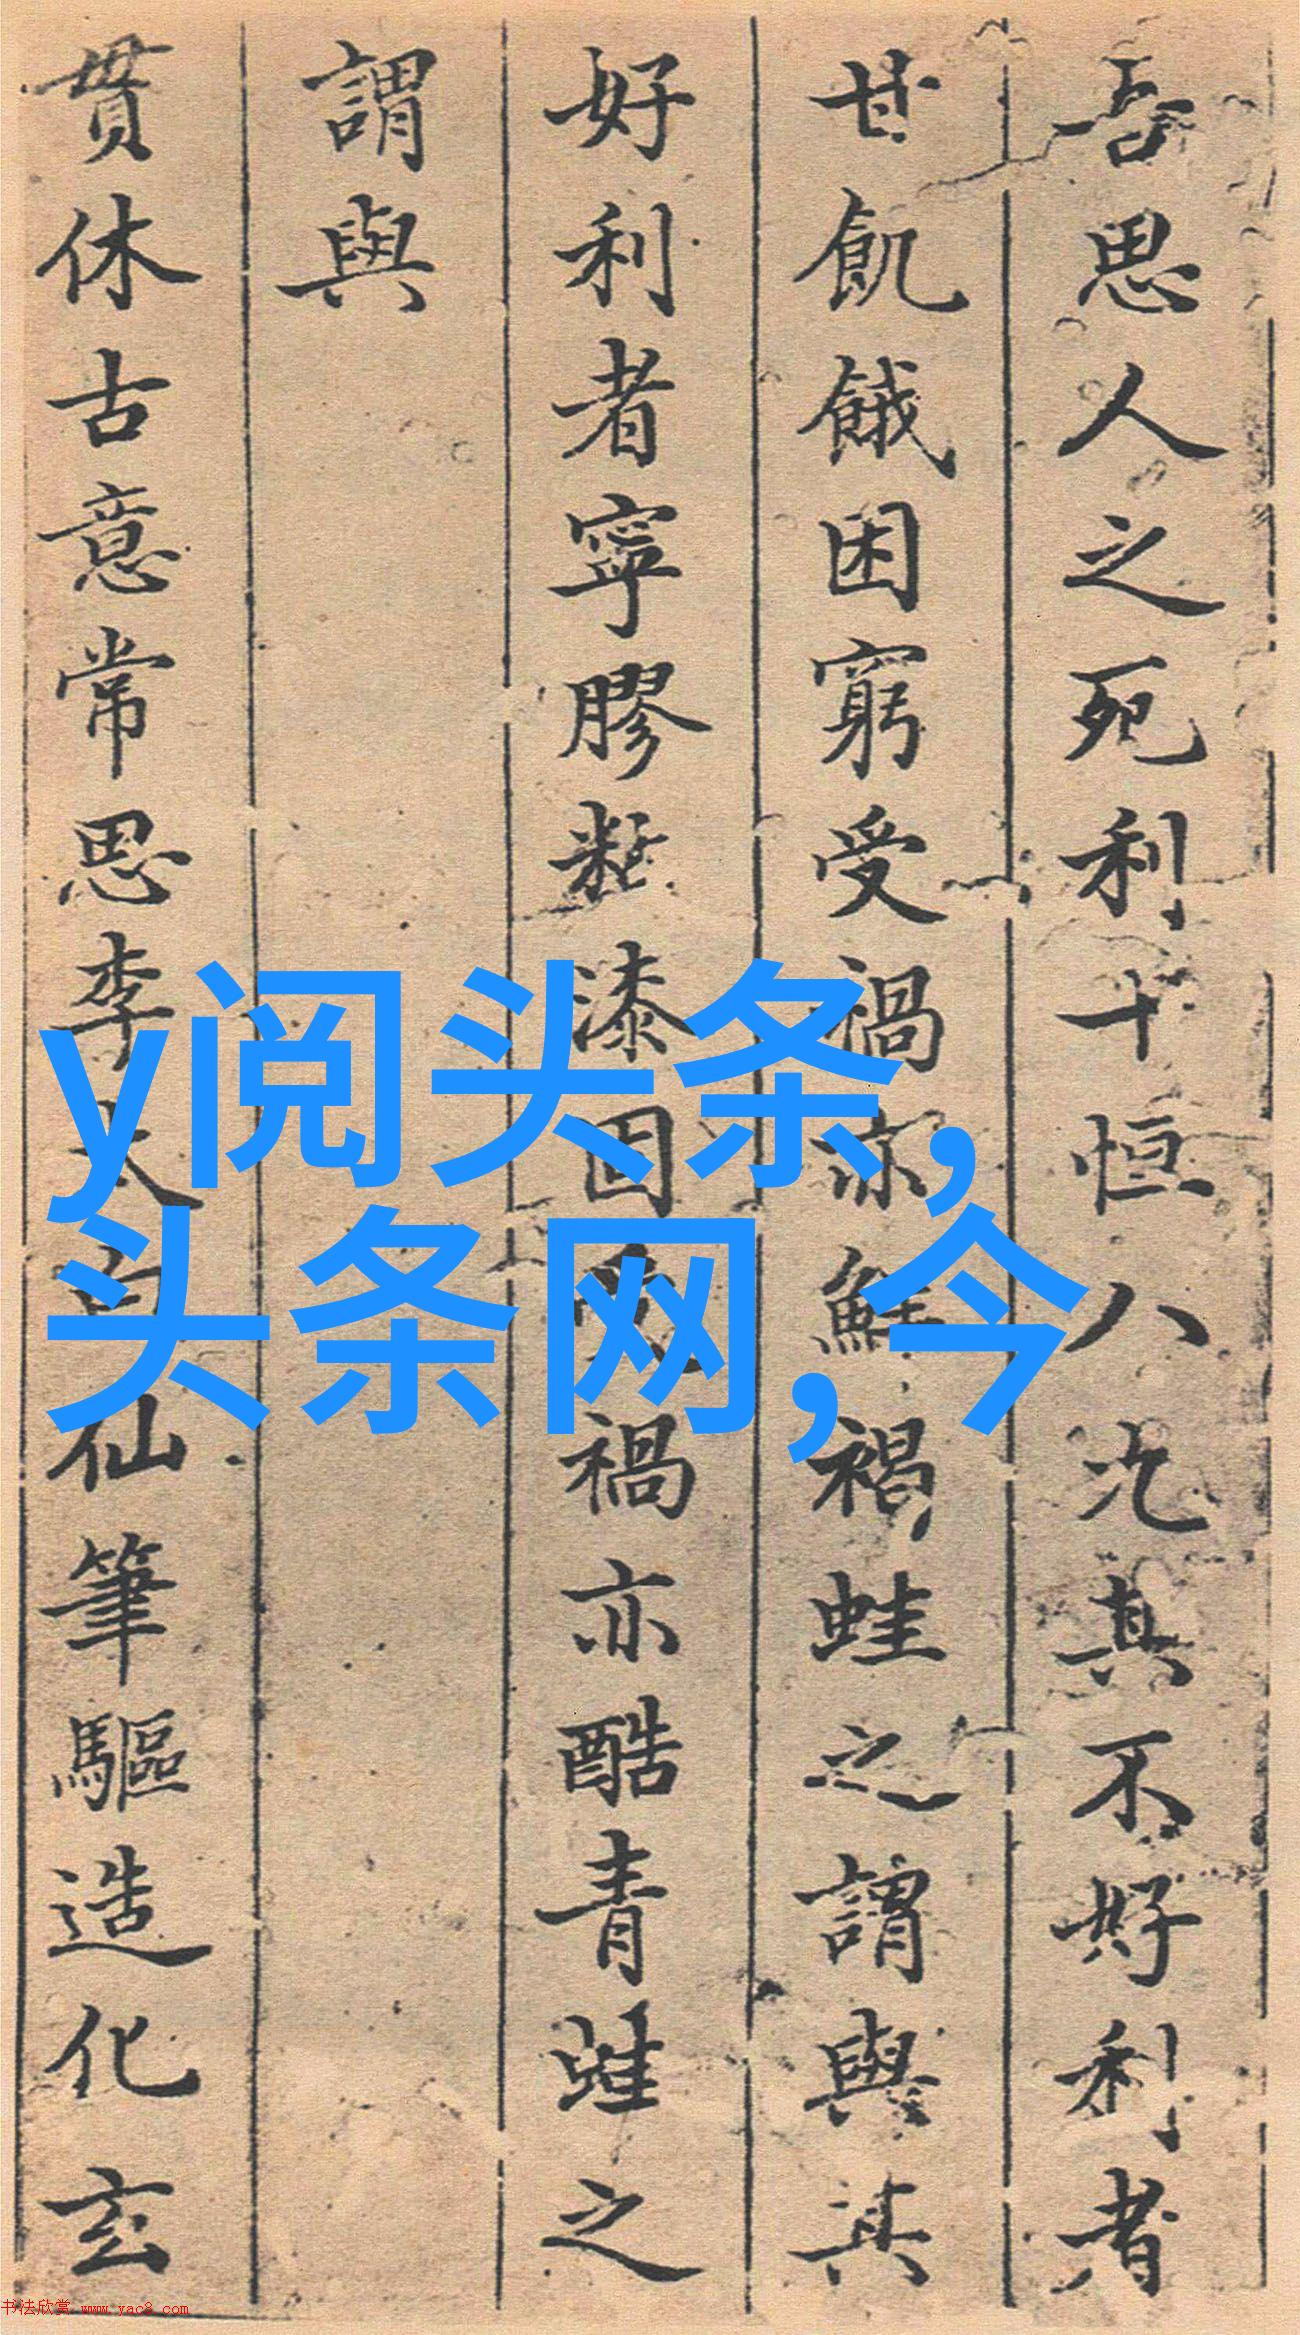 吾思人之死利十恒八其不好利者
甘飢餓困窮受禍亦鮮褐蛙之謂與其
好利者寧膠黏漆固禍亦酷青蛙之
謂與
貫休古意常思李太白仙筆驅造化玄
y阅头条,
头条网,今
书法欣赏 www.yac8.com